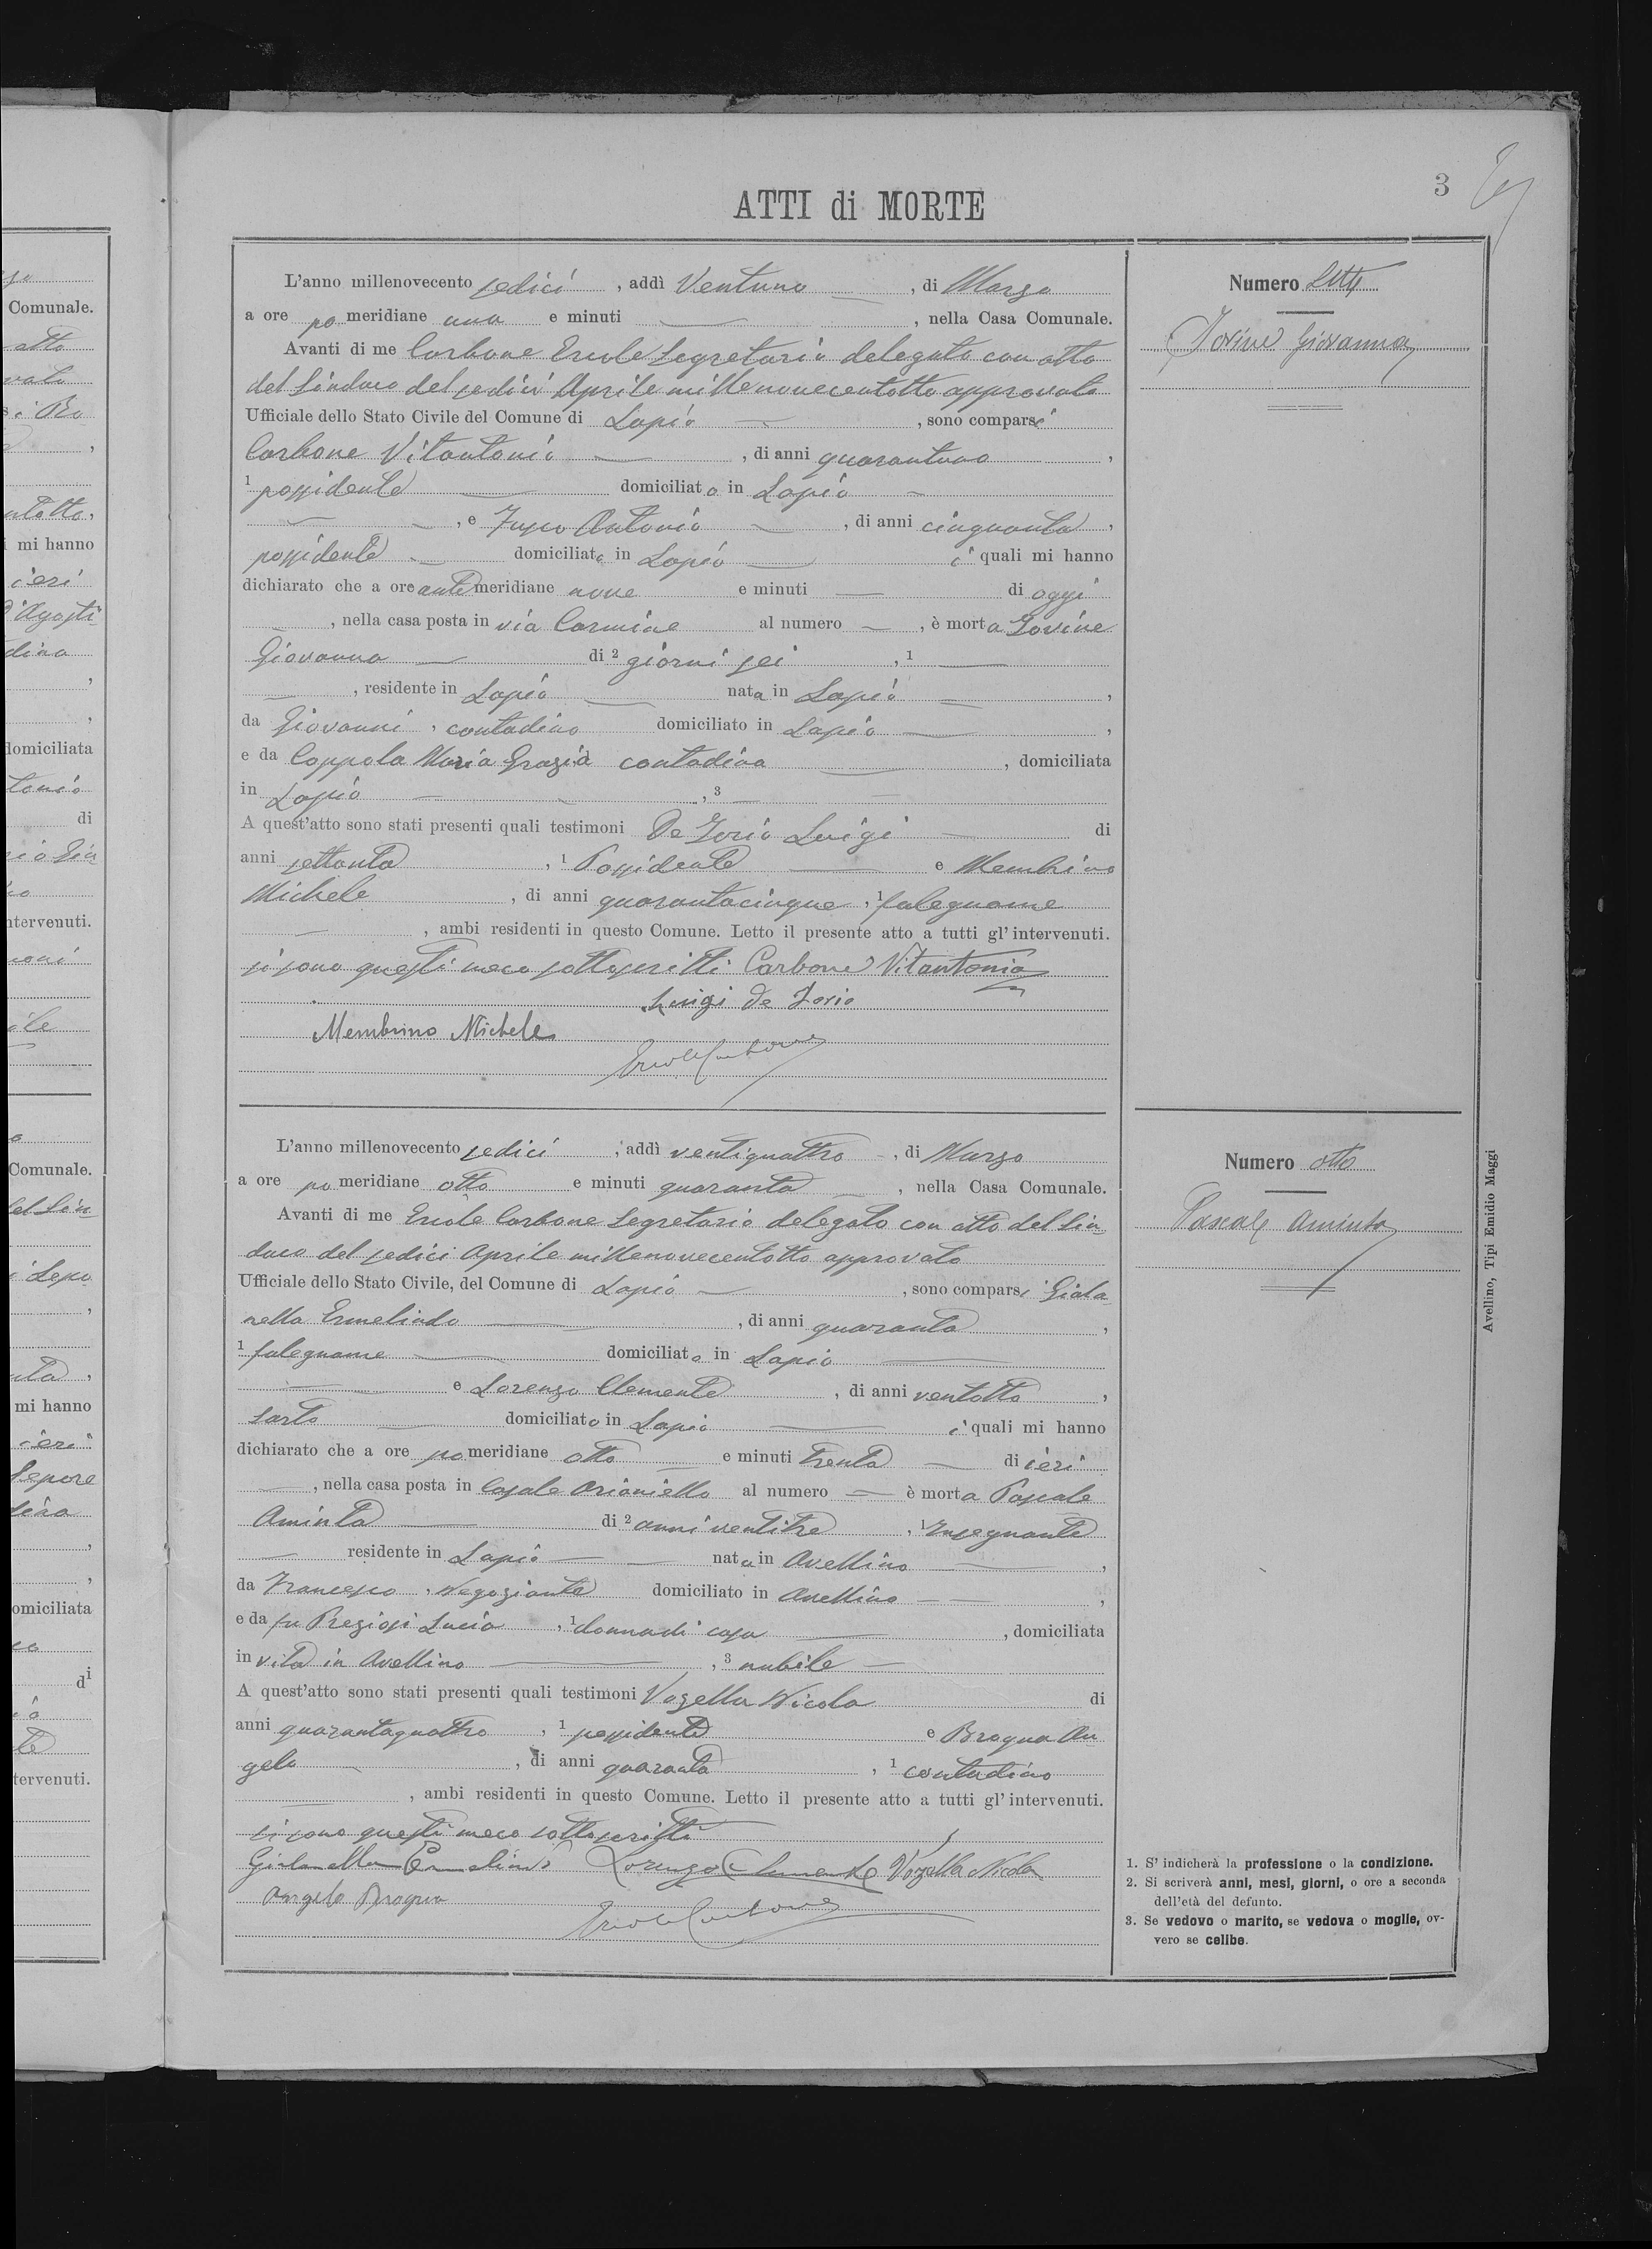 3
ATTI di MORTE
L'anno millenovecento sedici, addì Ventuno, di Marzo
a ore po meridiane una e minuti, nella Casa Comunale.
Avanti di me Carbone Ercole Segretario delegato con atto
del Sindaco del sedici Aprile millenovecentotto approvato
Ufficiale dello Stato Civile del Comune di Lapio, sono comparsi
Carbone Vitantonio, di anni quarantuno,
1 possidente domiciliato in Lapio
, e Fusco Antonio, di anni cinquanta,
possidente domiciliato in Lapio i quali mi hanno
dichiarato che a ore antemeridiane nove e minuti di oggi
, nella casa posta in via Carmine al numero, è morta Iovine
Giovanna di 2 giorni sei, 1
, residente in Lapio nata in Lapio,
da Giovanni, contadino domiciliato in Lapio,
e da Coppola Maria Grazia contadina, domiciliata
in Lapio, 3
A quest'atto sono stati presenti quali testimoni De Iorio Luigi di
anni settanta, 1 Possidente e Membrino
Michele, di anni quarantacinque, 1 falegname
, ambi residenti in questo Comune. Letto il presente atto a tutti gl'intervenuti.
si sono questi meco sottoscritti Carbone Vitantonio
Luigi de Iorio
Membrino Michele
Ercole Carbone
Numero Sette
Iovine Giovanna
L'anno millenovecento sedici, addì ventiquattro, di Marzo
a ore po meridiane otto e minuti quaranta, nella Casa Comunale.
Avanti di me Ercole Carbone Segretario delegato con atto del Sin-
daco del sedici Aprile millenovecentotto approvato
Ufficiale dello Stato Civile, del Comune di Lapio, sono comparsi Giola-
nella Ermelindo, di anni quaranta,
1 falegname domiciliato in Lapio
e Lorenzo Clemente, di anni ventotto,
sarto domiciliato in Lapio i quali mi hanno
dichiarato che a ore pomeridiane otto e minuti trenta di ieri
, nella casa posta in Casale Arianiello al numero è morta Pascale
Aminta di 2 anni ventitre, 1 Insegnante
residente in Lapio nata in Avellino,
da Francesco, Negoziante domiciliato in Avellino,
e da fu Preziosi Lucia, 1 donna di casa, domiciliata
in vita in Avellino, 3 nubile
A quest'atto sono stati presenti quali testimoni Vozella Nicola di
anni quarantaquattro, 1 possidente e Brogna An
gelo, di anni quaranta, 1 contadino
, ambi residenti in questo Comune. Letto il presente atto a tutti gl'intervenuti.
si sono questi meco sottoscritti
Giolanella Ermelindo Lorenzo Clemente Vozella Nicola
Angelo Brogna
Ercole Carbone
Numero otto
Pascale Aminta
1. S'indicherà la professione o la condizione.
2. Si scriverà anni, mesi, giorni, o ore a seconda
dell'età del defunto.
3. Se vedovo o marito, se vedova o moglie, ov-
vero se celibe.
Avellino, Tipi Emidio Maggi